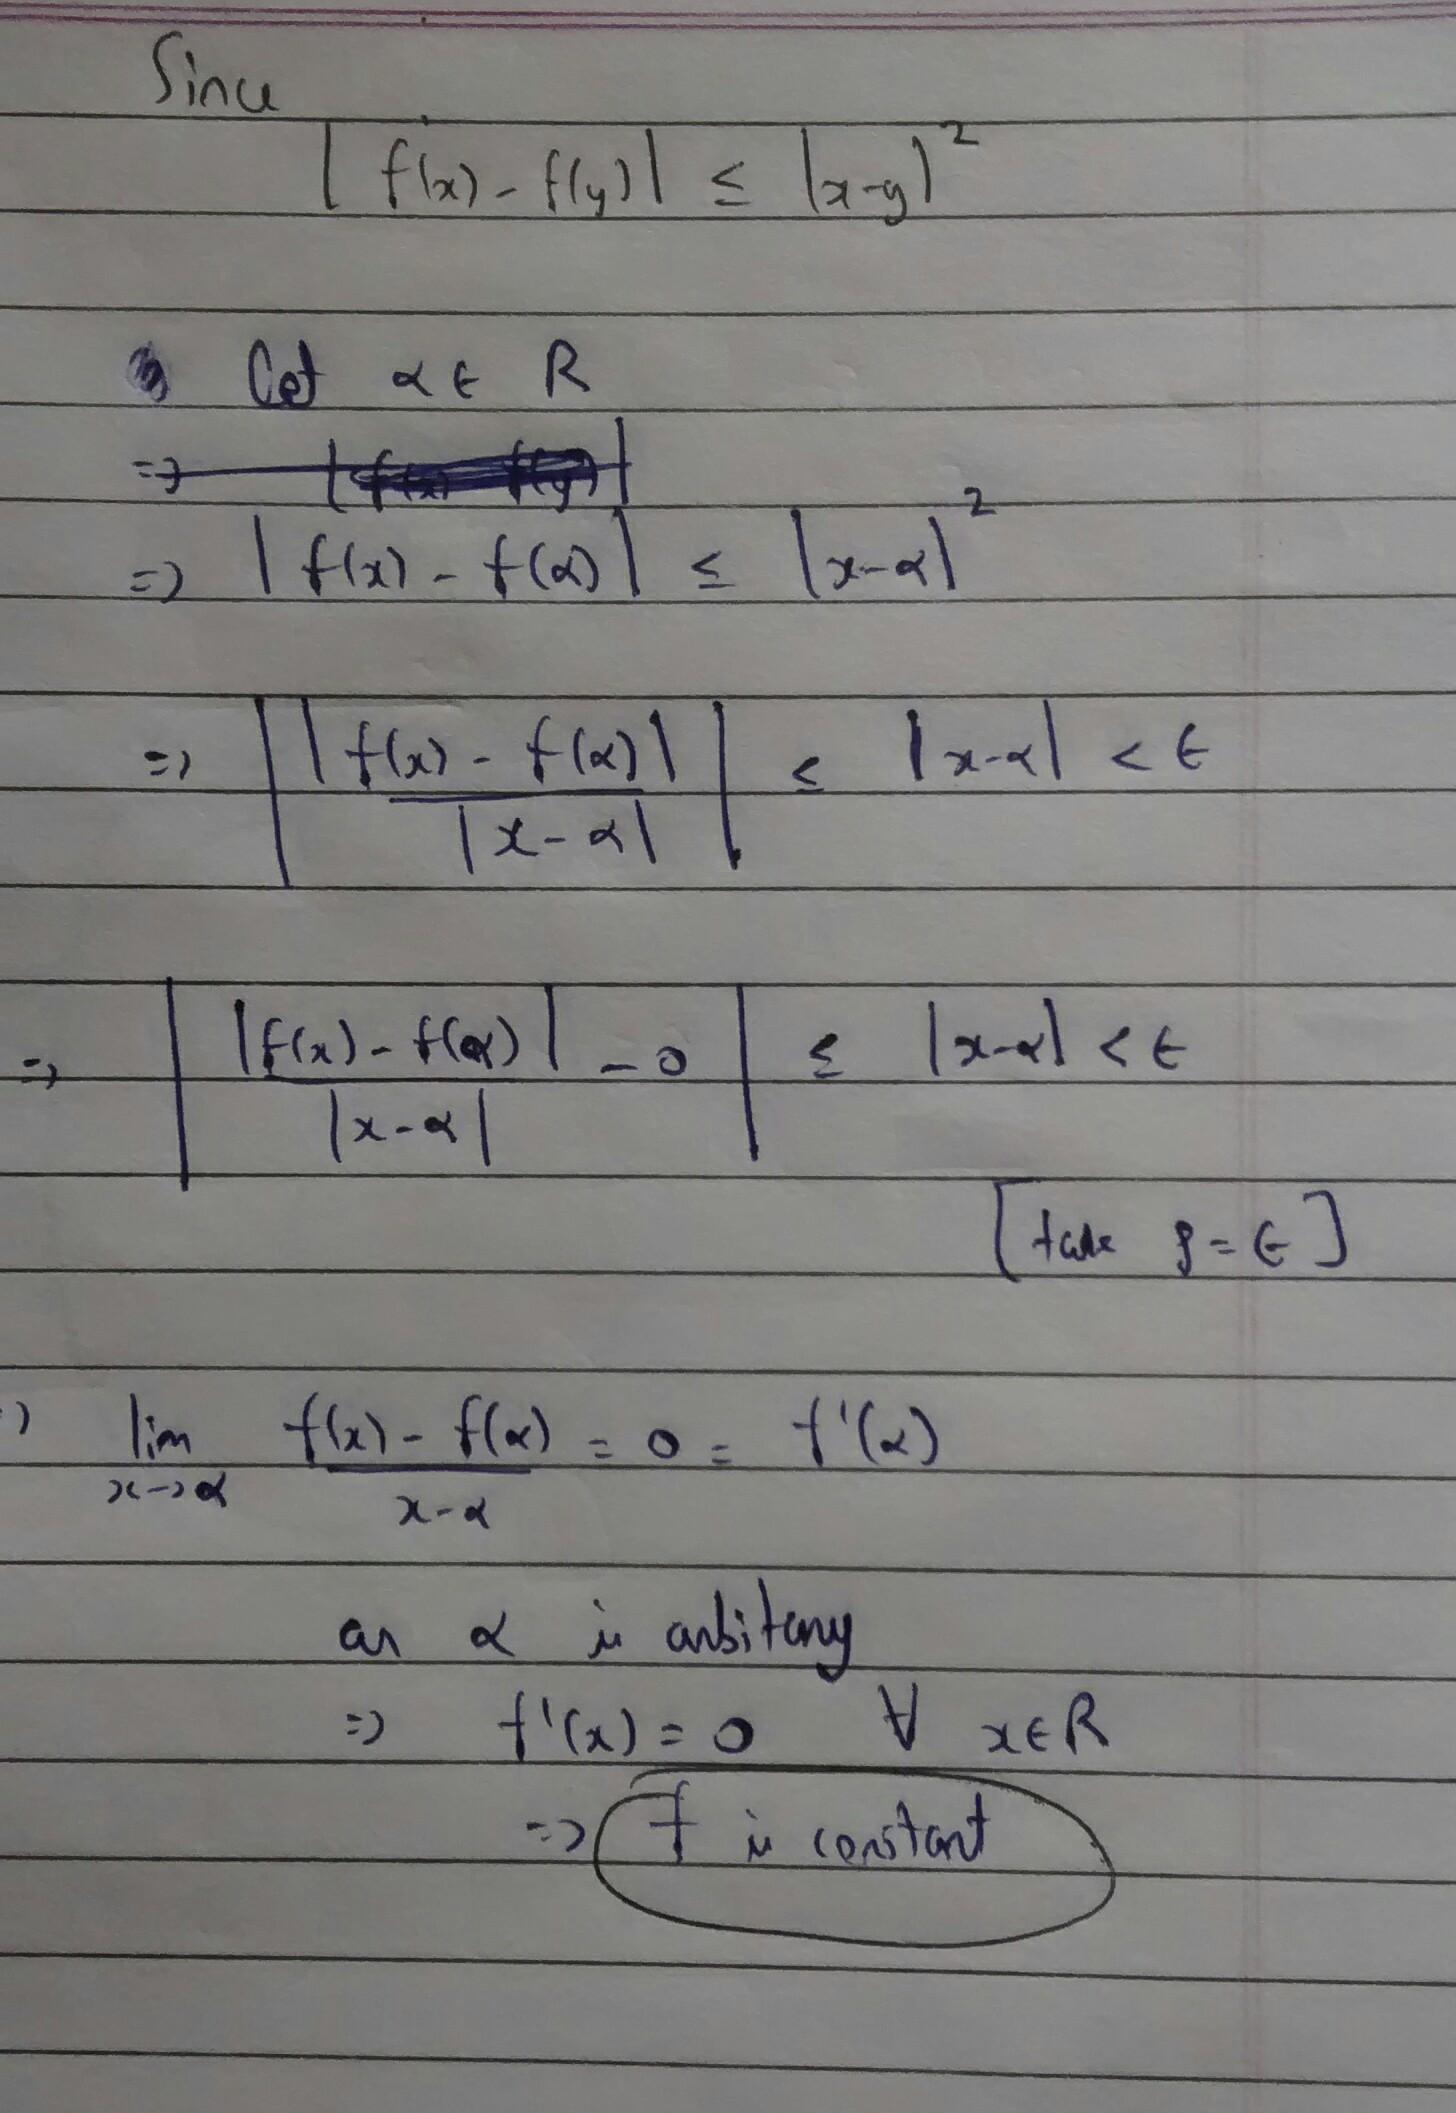 Since
| f(x) - f(y) | ≤ |x-y|²
Let α ∈ R
=> | f(x) - f(α) | ≤ |x-α|²
=> | |f(x) - f(α)| / |x-α| | ≤ |x-α| < ε
=> | |f(x) - f(α)| / |x-α| - 0 | ≤ |x-α| < ε
[take δ = ε]
=> lim x->α f(x) - f(α) / x-α = 0 = f'(α)
as α is arbitary
=> f'(x) = 0 ∀ x ∈ R
=> f is constant